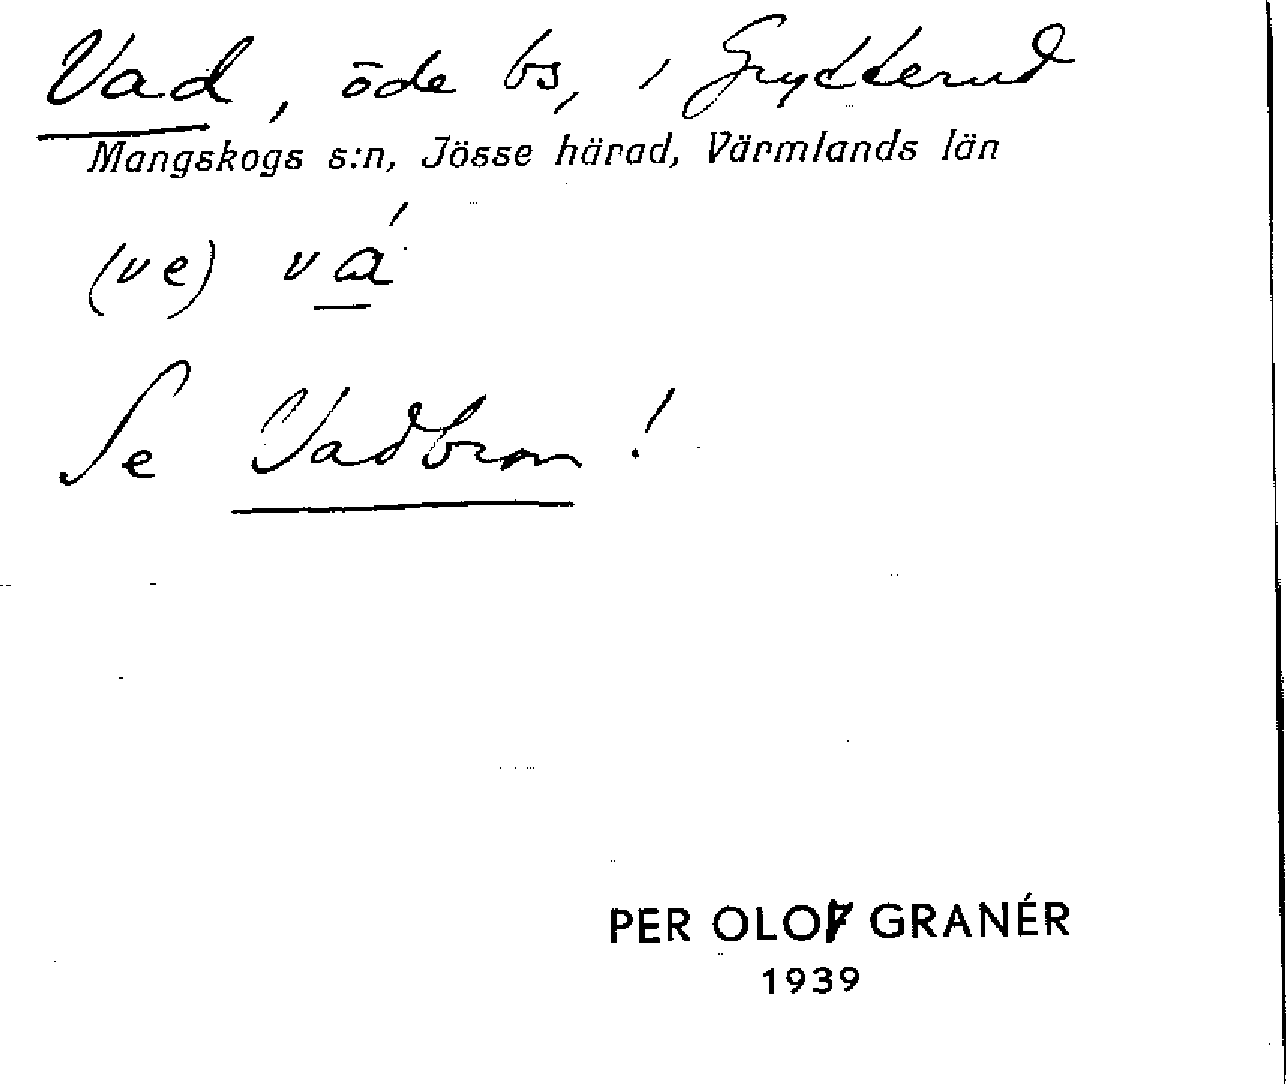 Vad, öde bs, i Grytterud
Mangskogs s:n, Jösse härad, Värmlands län
(ve) vá
Se Vadbron!
PER OLOF GRANÉR
1939